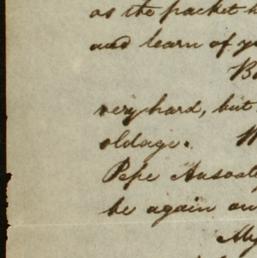 as the packet
and learn of
very hard, but
oldage.
Pepe
be again
My